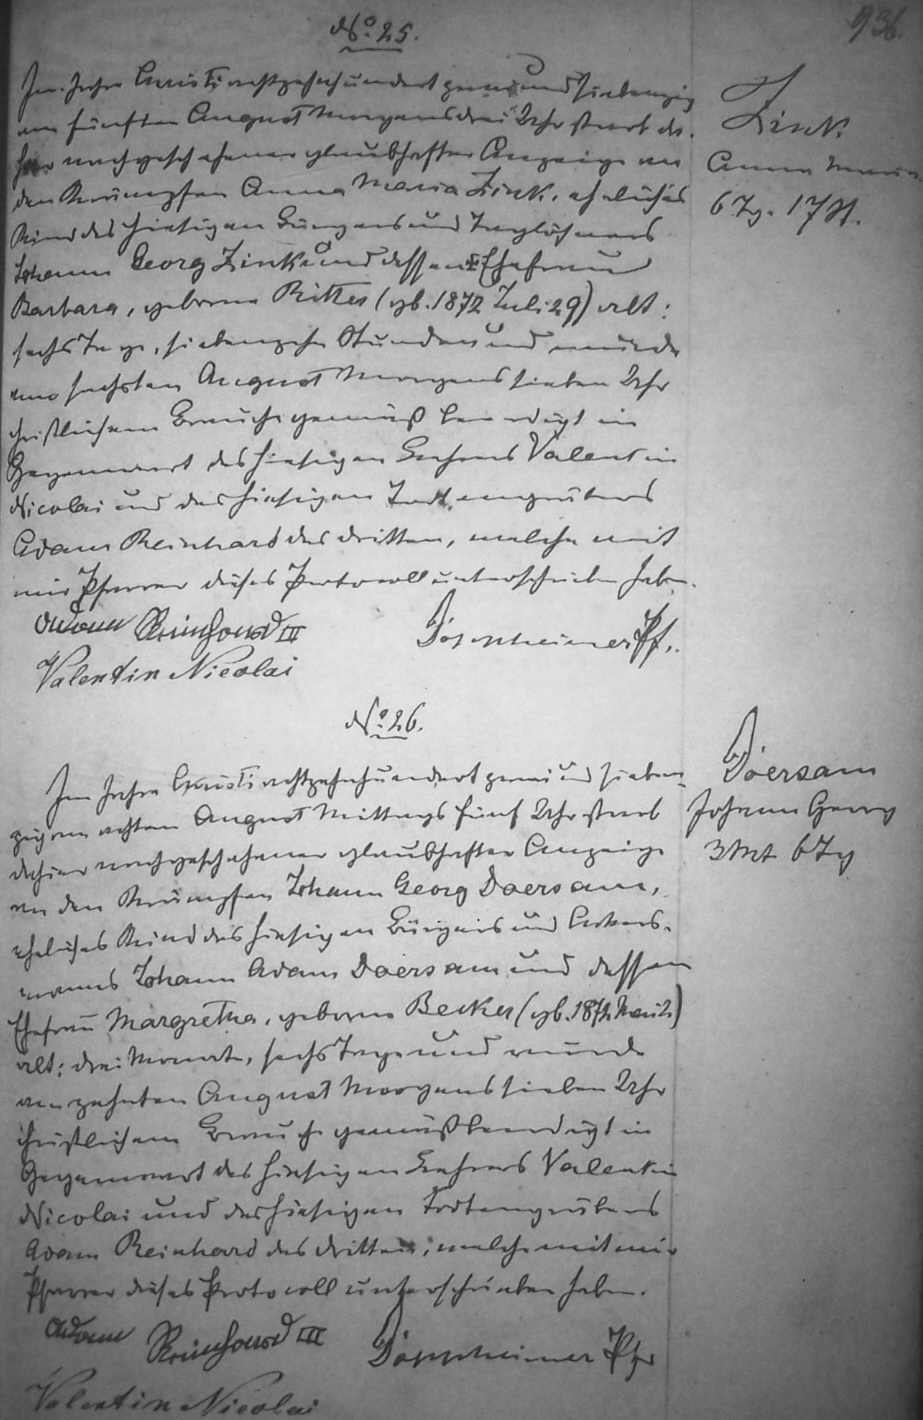 936.
No. 25.
Im Jahre Christi achtzehnhundert zwei und siebenzig
am fünften August Morgens drei Uhr starb da-
hier nachgeschehener glaubhafter Anzeige an
den Krämpfen Anna Maria Zink, eheliches
Kind des hiesigen Bürgers und Taglöhners
Johann Georg Zink und dessen Ehefrau
Barbara, geborne Ritter (gb. 1872 Juli 29) alt:
sechs Tage, siebenzehn Stunden und wurde
am sechsten August Morgens sieben Uhr
christlichem Brauche gemäß beerdigt in
Gegenwart des hiesigen Lehrers Valentin
Nicolai und des hiesigen Todtengräbers
Adam Reinhard des dritten, welche mit
mir Pfarrer dieses Protocoll unterschrieben haben.
Adam Reinhard III
Valentin Nicolai
Zink
Anna Maria
6 Tg. 17 St.
No. 26.
Im Jahre Christi achtzehnhundert zwei und sieben-
zig am achten August Mittags fünf Uhr starb
dahier nachgeschehener glaubhafter Anzeige
an den Krämpfen Johann Georg Doersam,
eheliches Kind des hiesigen Bürgers und Ackers-
manns Johann Adam Doersam und dessen
Ehefrau Margretha, geborne Becker (gb. 1872 Mai 2.)
alt: drei Monate, sechs Tage und wurde
am zehnten August Morgens sieben Uhr
christlichem Brauche gemäß beerdigt in
Gegenwart des hiesigen Lehrers Valentin
Nicolai und des hiesigen Todtengräbers
Adam Reinhard des dritten, welche mit mir
Pfarrer dieses Protocoll unterschrieben haben.
Adam Reinhard III
Valentin Nicolai
Doersam
Johann Georg
3 Mt 6 Tg